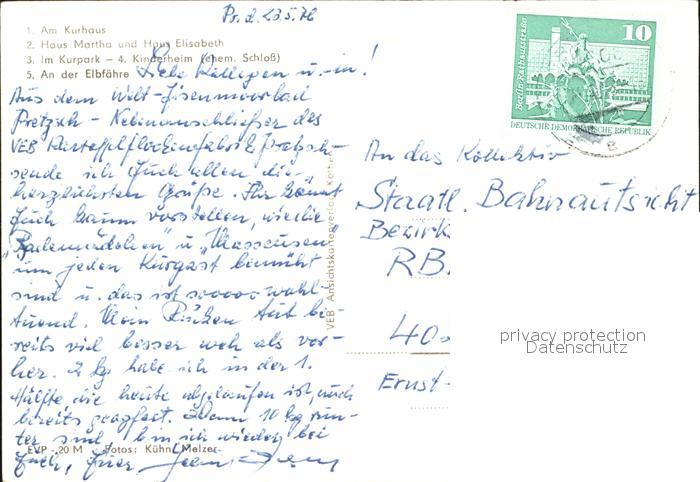 Pr. d. 23.5.76
1. Am Kurhaus
2. Haus Martha und Haus Elisabeth
3. Im Kurpark - 4. Kinderheim (ehem. Schloß)
5. An der Elbfähre
Liebe Kollegen u. -in!
Aus dem Welt-Eisenmoorbad
Pretzsch - Nebenanschließer des
VEB Kartoffelflockenfabrik Pretzsch -
sende ich Euch allen die
herzlichsten Grüße. Ihr könnt
Euch kaum vorstellen, wie die
"Bademädchen" u. "Masseusen"
um jeden Kurgast bemüht
sind u. das ist sooooo wohl-
tuend. Mein Rücken tut be-
reits viel besser weh als vor-
her. 2 kg habe ich in der 1.
Hälfte die heute abgelaufen ist, auch
bereits geschafft. Wenn 10 kg run-
ter sind, bin ich wieder bei
Euch, Euer
EVP -20 M Fotos: Kühn, Melzer
VEB Ansichtskartenverlag
Berlin-Rathausstraße
10
DEUTSCHE DEMOKRATISCHE REPUBLIK
B
An das Kollektiv
Staatl. Bahnaufsicht
Bezirk
RB.
40
Ernst-
privacy protection
Datenschutz